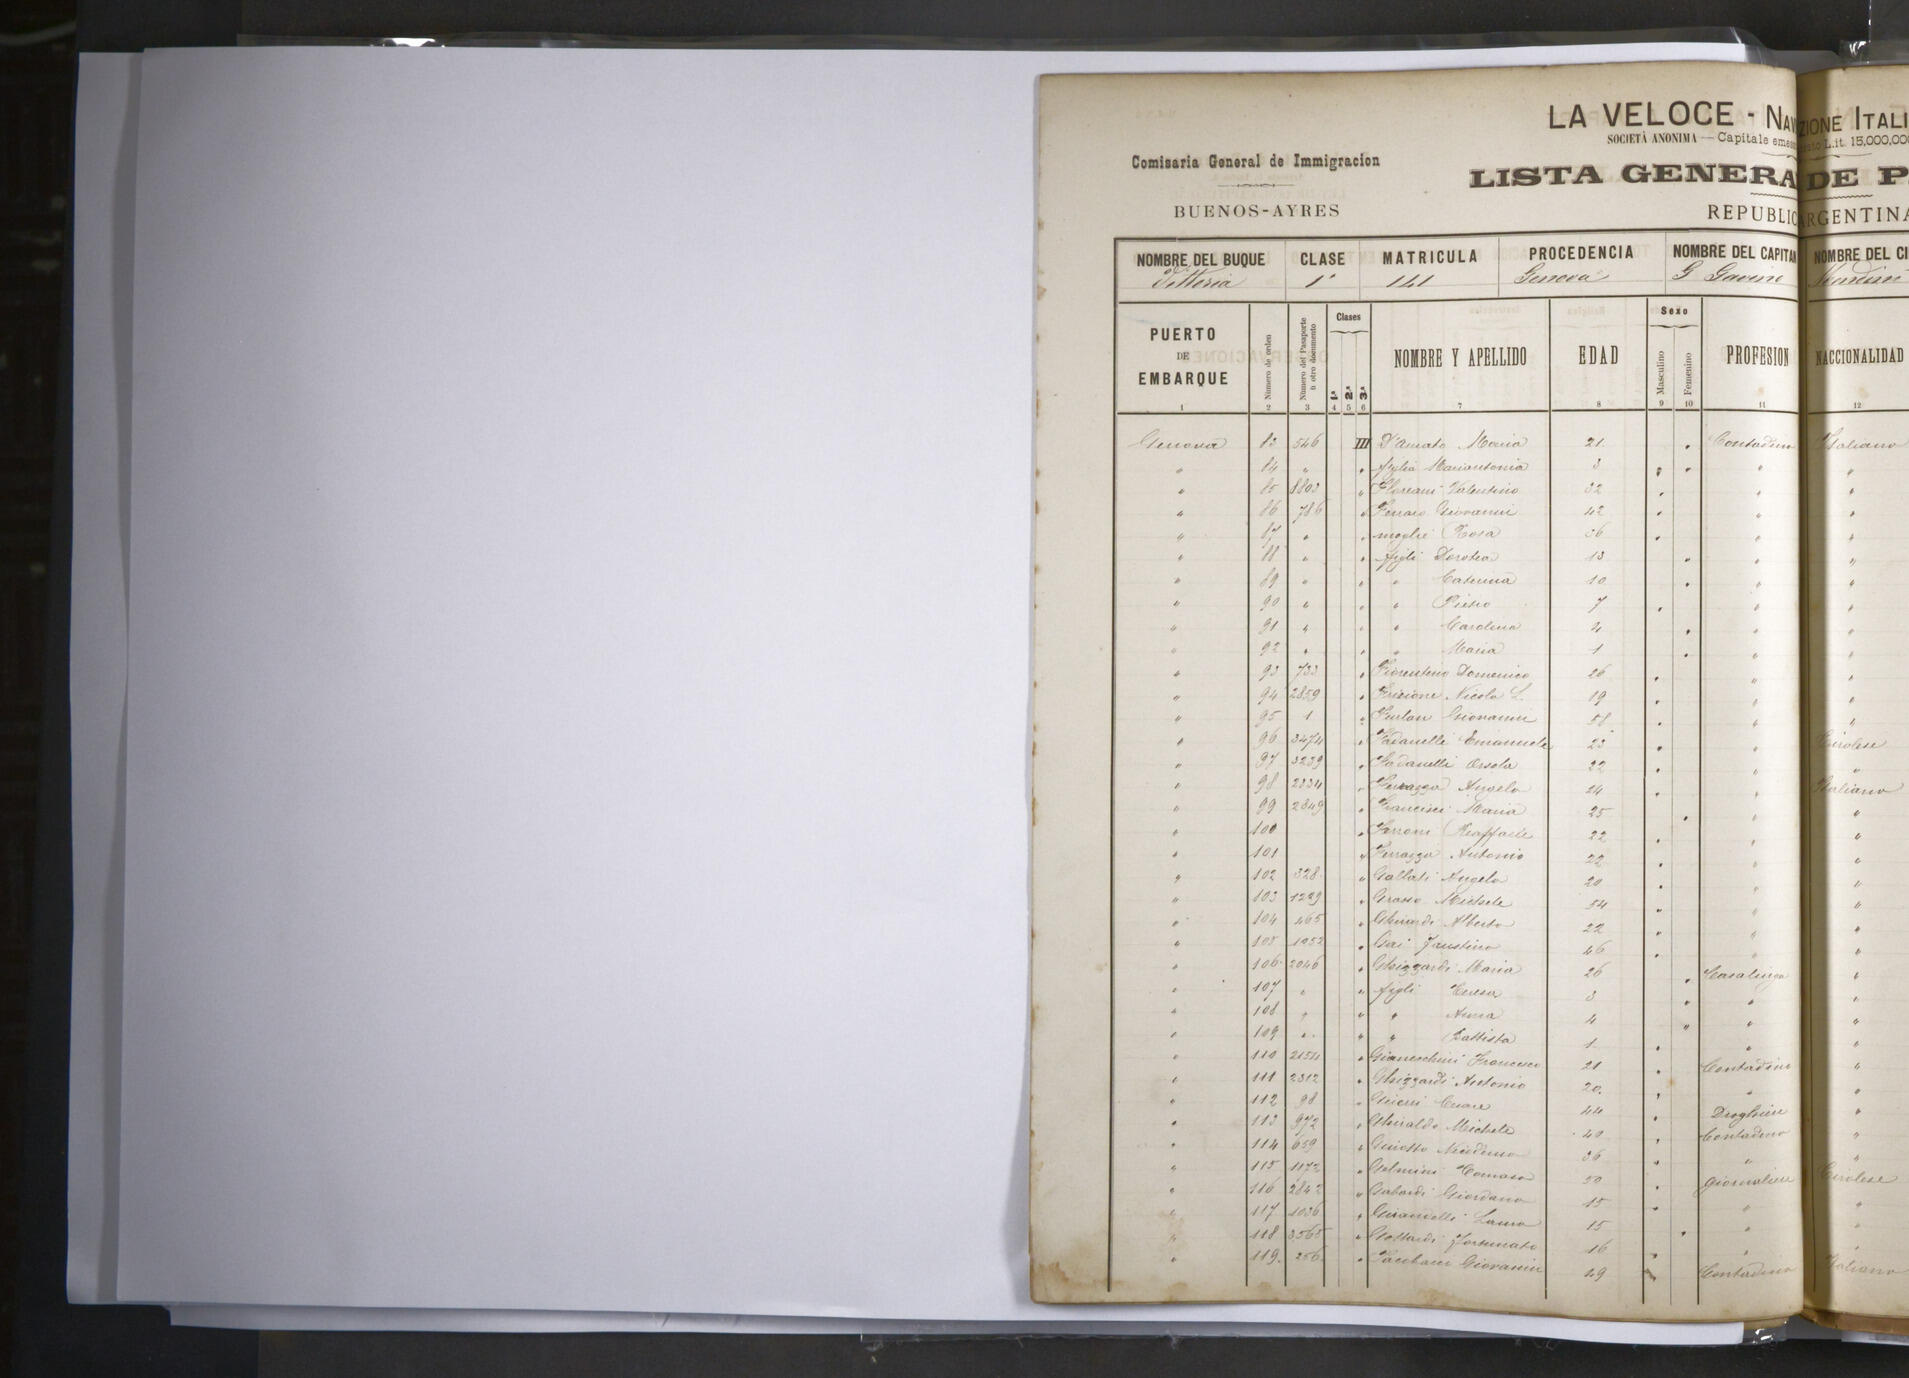 LA VELOCE - NAV ZIONE ITALI
SOCIETÀ ANONIMA — Capitale emes L.it. 15,000,000
Comisaria General de Immigracion
LISTA GENERA DE P
BUENOS-AYRES
REPUBLIC ARGENTINA
NOMBRE DEL BUQUE CLASE MATRICULA PROCEDENCIA NOMBRE DEL CAPITAN NOMBRE DEL CI
Vittoria 1ª 141 Genova G Gavino
PUERTO DE EMBARQUE Número de orden Número del Pasaporte ù otro documento Clases 1.ª 2.ª 3.ª NOMBRE Y APELLIDO EDAD Sexo Masculino Femenino PROFESION NACCIONALIDAD
1 2 3 4 5 6 7 8 9 10 11 12
Genova 83 546 III D'Amato Maria 21 Contadino Italiano
" 84 " " figlia Mariantonia 3 " "
" 85 1803 " Floreani Valentino 32 " "
" 86 786 " Ferraro Giovanni 42 " "
" 87 " " moglie Rosa 36 " "
" 88 " " figli Dorotea 13 " "
" 89 " " " Caterina 10 " "
" 90 " " " Pietro 7 " "
" 91 " " " Carolina 4 " "
" 92 " " " Maria 1 " "
" 93 733 " Fiorentino Domenico 26 " "
" 94 2859 " Nicola L. 19 " "
" 95 1 " Furlan Giovanni 58 " "
" 96 3474 " Fadanelli Emanuele 23 " Tirolese
" 97 3239 " Fadanelli Orsola 22 " "
" 98 2334 " Ferrazza Angelo 24 " Italiano
" 99 2849 " Francisci Maria 25 " "
" 100 " Raffaele 22 " "
" 101 " Ferrazza Antonio 22 " "
" 102 328 " Gallati Angelo 20 " "
" 103 1229 " Grasso Michele 54 " "
" 104 465 " Ghirardi Alberto 22 " "
" 105 1052 " Faustino 46 " "
" 106 2046 " Ghizzardi Maria 26 Casalinga "
" 107 " " figli Teresa 3 " "
" 108 " " " Anna 4 " "
" 109 " " " Battista 1 " "
" 110 2154 " Gianeschini Francesco 21 Contadino "
" 111 2312 " Ghizzardi Antonio 20 " "
" 112 98 " Cesare 44 Droghiere "
" 113 972 " Ghiraldo Michele 40 Contadino "
" 114 659 " Nicodemo 36 " "
" 115 1172 " Gelmini Tomaso 50 giornaliere Tirolese
" 116 2842 " Gabardi Giordano 15 " "
" 117 1036 " Laura 15 " "
" 118 3565 " Gottardi Fortunato 16 " "
" 119 256 " Giovanni 49 Contadino Italiano